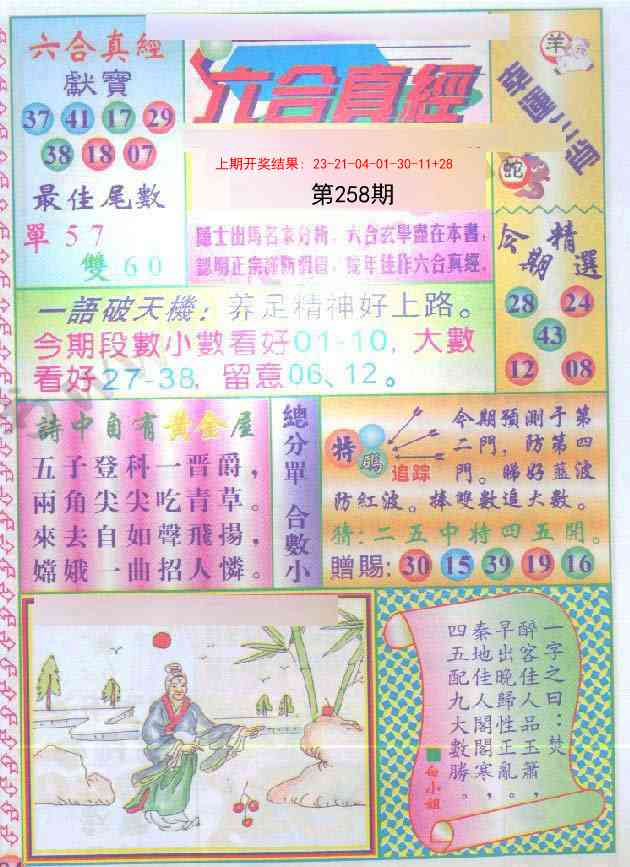 六合真經
獻寶
37 41 17 29
38 18 07
最佳尾數
單57
雙60
六合真經
上期开奖结果：23-21-04-01-30-11+28
第258期
隱士出馬名家分析，六合玄學盡在本書，
認明正宗謹防假冒，蛇年佳作六合真經。
羊
蛇
幸運三
今期精選
28 24
43
12 08
一語破天機：养足精神好上路。
今期段數小數看好01-10，大數
看好27-38，留意06、12。
詩中自有黃金屋
五子登科一晋爵，
兩角尖尖吃青草。
來去自如聲飛揚，
嫦娥一曲招人憐。
總分單 合數小
特碼
追踪
今期預測于第
二門，防第四
門。睇好藍波
防紅波。捧雙數追大數。
猜：二五中特四五開。
贈賜：30 15 39 19 16
一字之曰：焚
醉客佳人品玉蕭，
早出晚歸性正亂。
秦地佳人閣閣寒，
四五配九大數勝。
白小姐